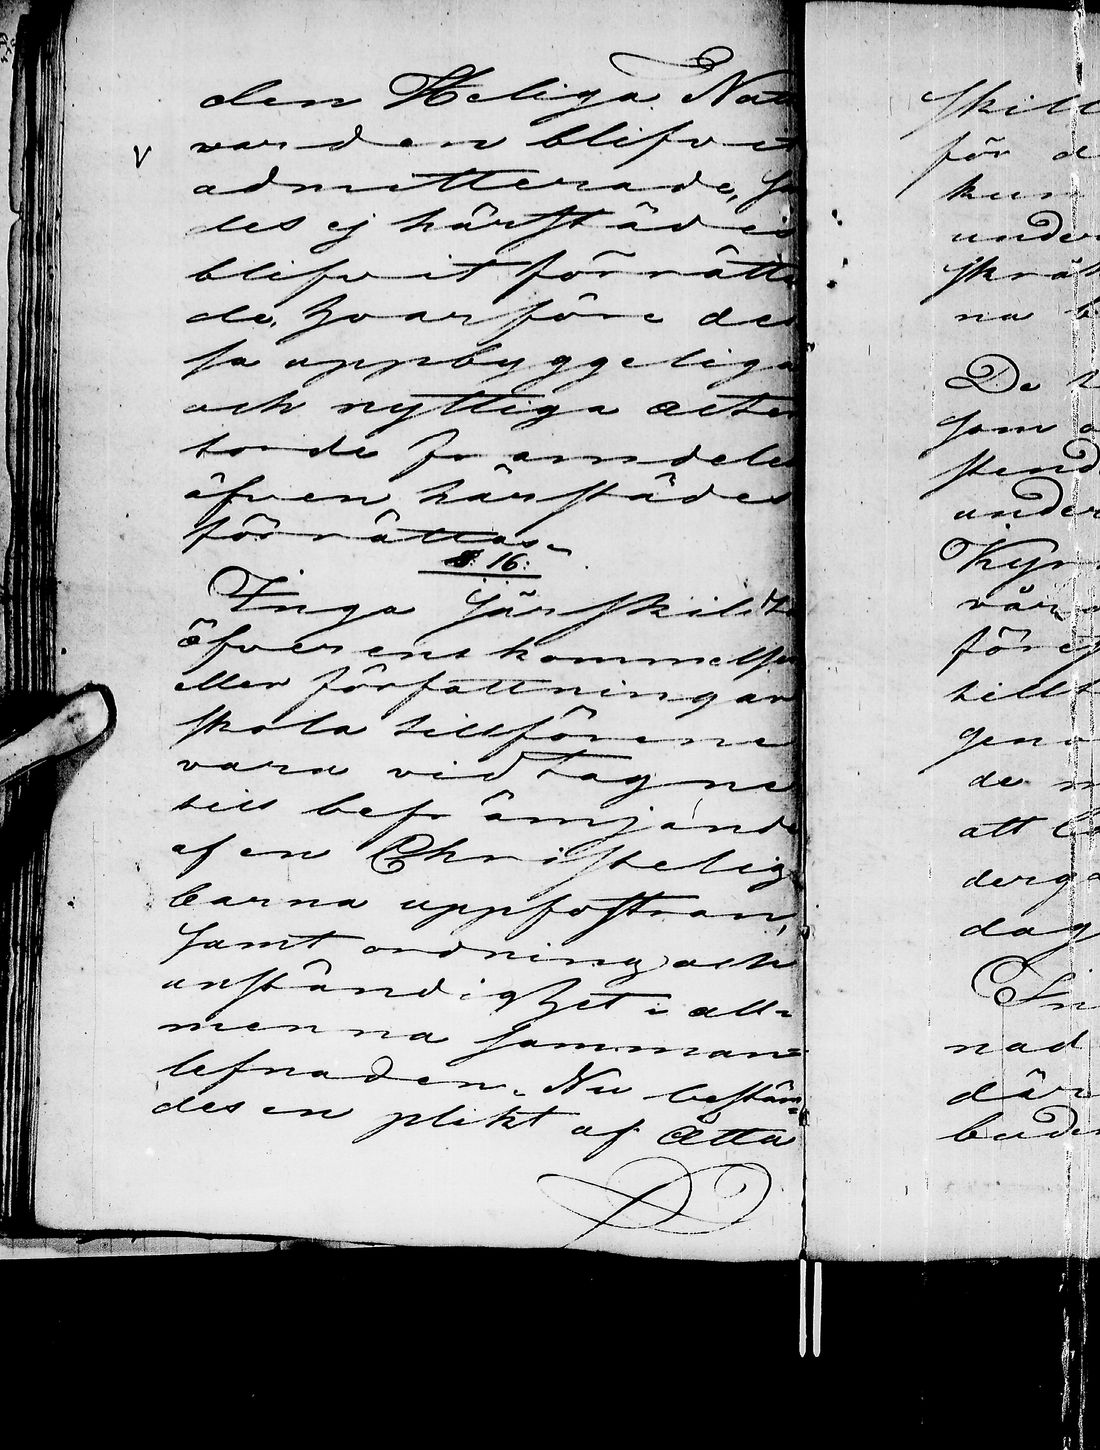 den Heliga Natt
varden blifvit
admitterade, så
des ej härstädes
blifvit förrätta
de, hvarföre des
sa uppbyggeliga
och nyttiga acter
torde framdeles
äfven härstädes
förrättas.
§. 16.
Inga särskildta
öfverenskommelser
eller författningar
skola tillförene
vara vidtagne
till befrämjande
af en Christelig
barna uppfostran,
samt ordning och
anständighet i all=
menna samman=
lefnaden. Nu bestäm=
des en plikt af Åtta
skill
för d
kun
under
skräk
na b
De
som
stend
under
Kyr
vär
föreg
till
gen
de m
att
derg
dag
In
nad
där
bude